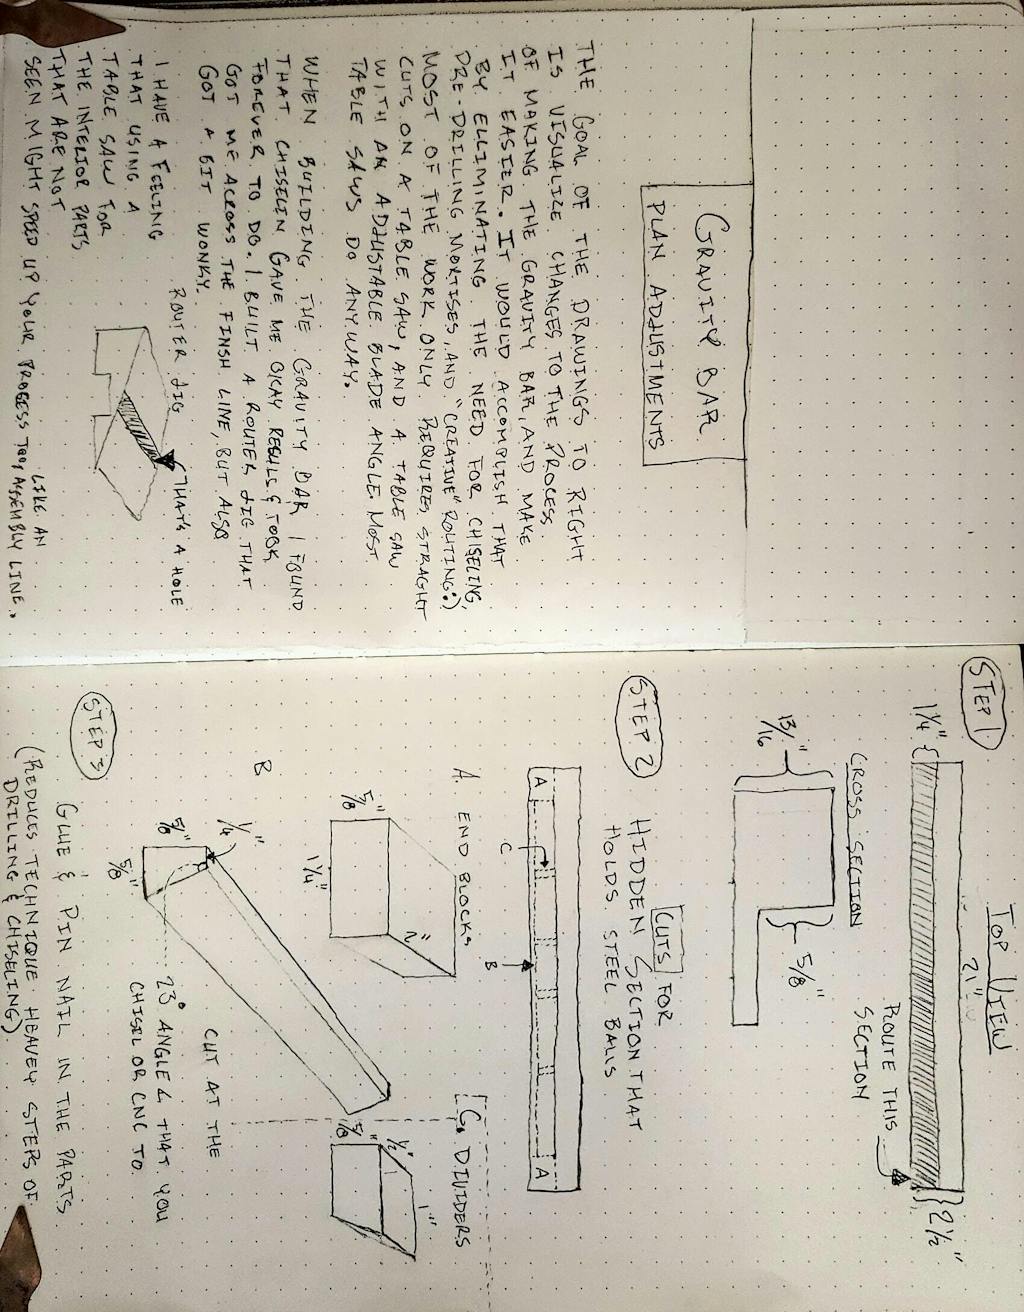 GRAVITY BAR
PLAN ADJUSTMENTS
THE GOAL OF THE DRAWINGS TO RIGHT
IS VISUALIZE CHANGES TO THE PROCESS
OF MAKING THE GRAVITY BAR, AND MAKE
IT EASIER. IT WOULD ACCOMPLISH THAT
BY ELLIMINATING THE NEED FOR CHISELING,
PRE-DRILLING MORTISES, AND "CREATIVE" ROUTING :)
MOST OF THE WORK ONLY REQUIRES STRAGHT
CUTS ON A TABLE SAW, AND A TABLE SAW
WITH AN ADJUSTABLE BLADE ANGLE. MOST
TABLE SAWS DO ANYWAY.
WHEN BUILDING THE GRAVITY BAR I FOUND
THAT CHISELIN GAVE ME OKAY RESULS & TOOK
FOREVER TO DO. I BUILT A ROUTER JIG THAT
GOT ME ACROSS THE FINSH LINE, BUT ALSO
GOT A BIT WONKY.
ROUTER JIG
THAT'S A HOLE
I HAVE A FEELING
THAT USING A
TABLE SAW FOR
THE INTERIOR PARTS
THAT ARE NOT LIKE AN
SEEN MIGHT SPEED UP YOUR PROCESS TOO, ASSEMBLY LINE.
STEP 1
TOP VIEW
21"
1 1/4"
2 1/2"
ROUTE THIS
SECTION
CROSS SECTION
13/16"
5/8"
STEP 2
CUTS FOR
HIDDEN SECTION THAT
HOLDS STEEL BALLS
A
C
B
A
A. END BLOCKS
5/8"
1 1/4"
2"
C. DIVIDERS
1/2"
5/8"
1"
B
1/4"
5/8"
5/8"
CUT AT THE
23° ANGLE THAT YOU
CHISEL OR CNC TO
STEP 3
GLUE & PIN NAIL IN THE PARTS
(REDUCES TECHNIQUE HEAVEY STEPS OF
DRILLING & CHISELING)